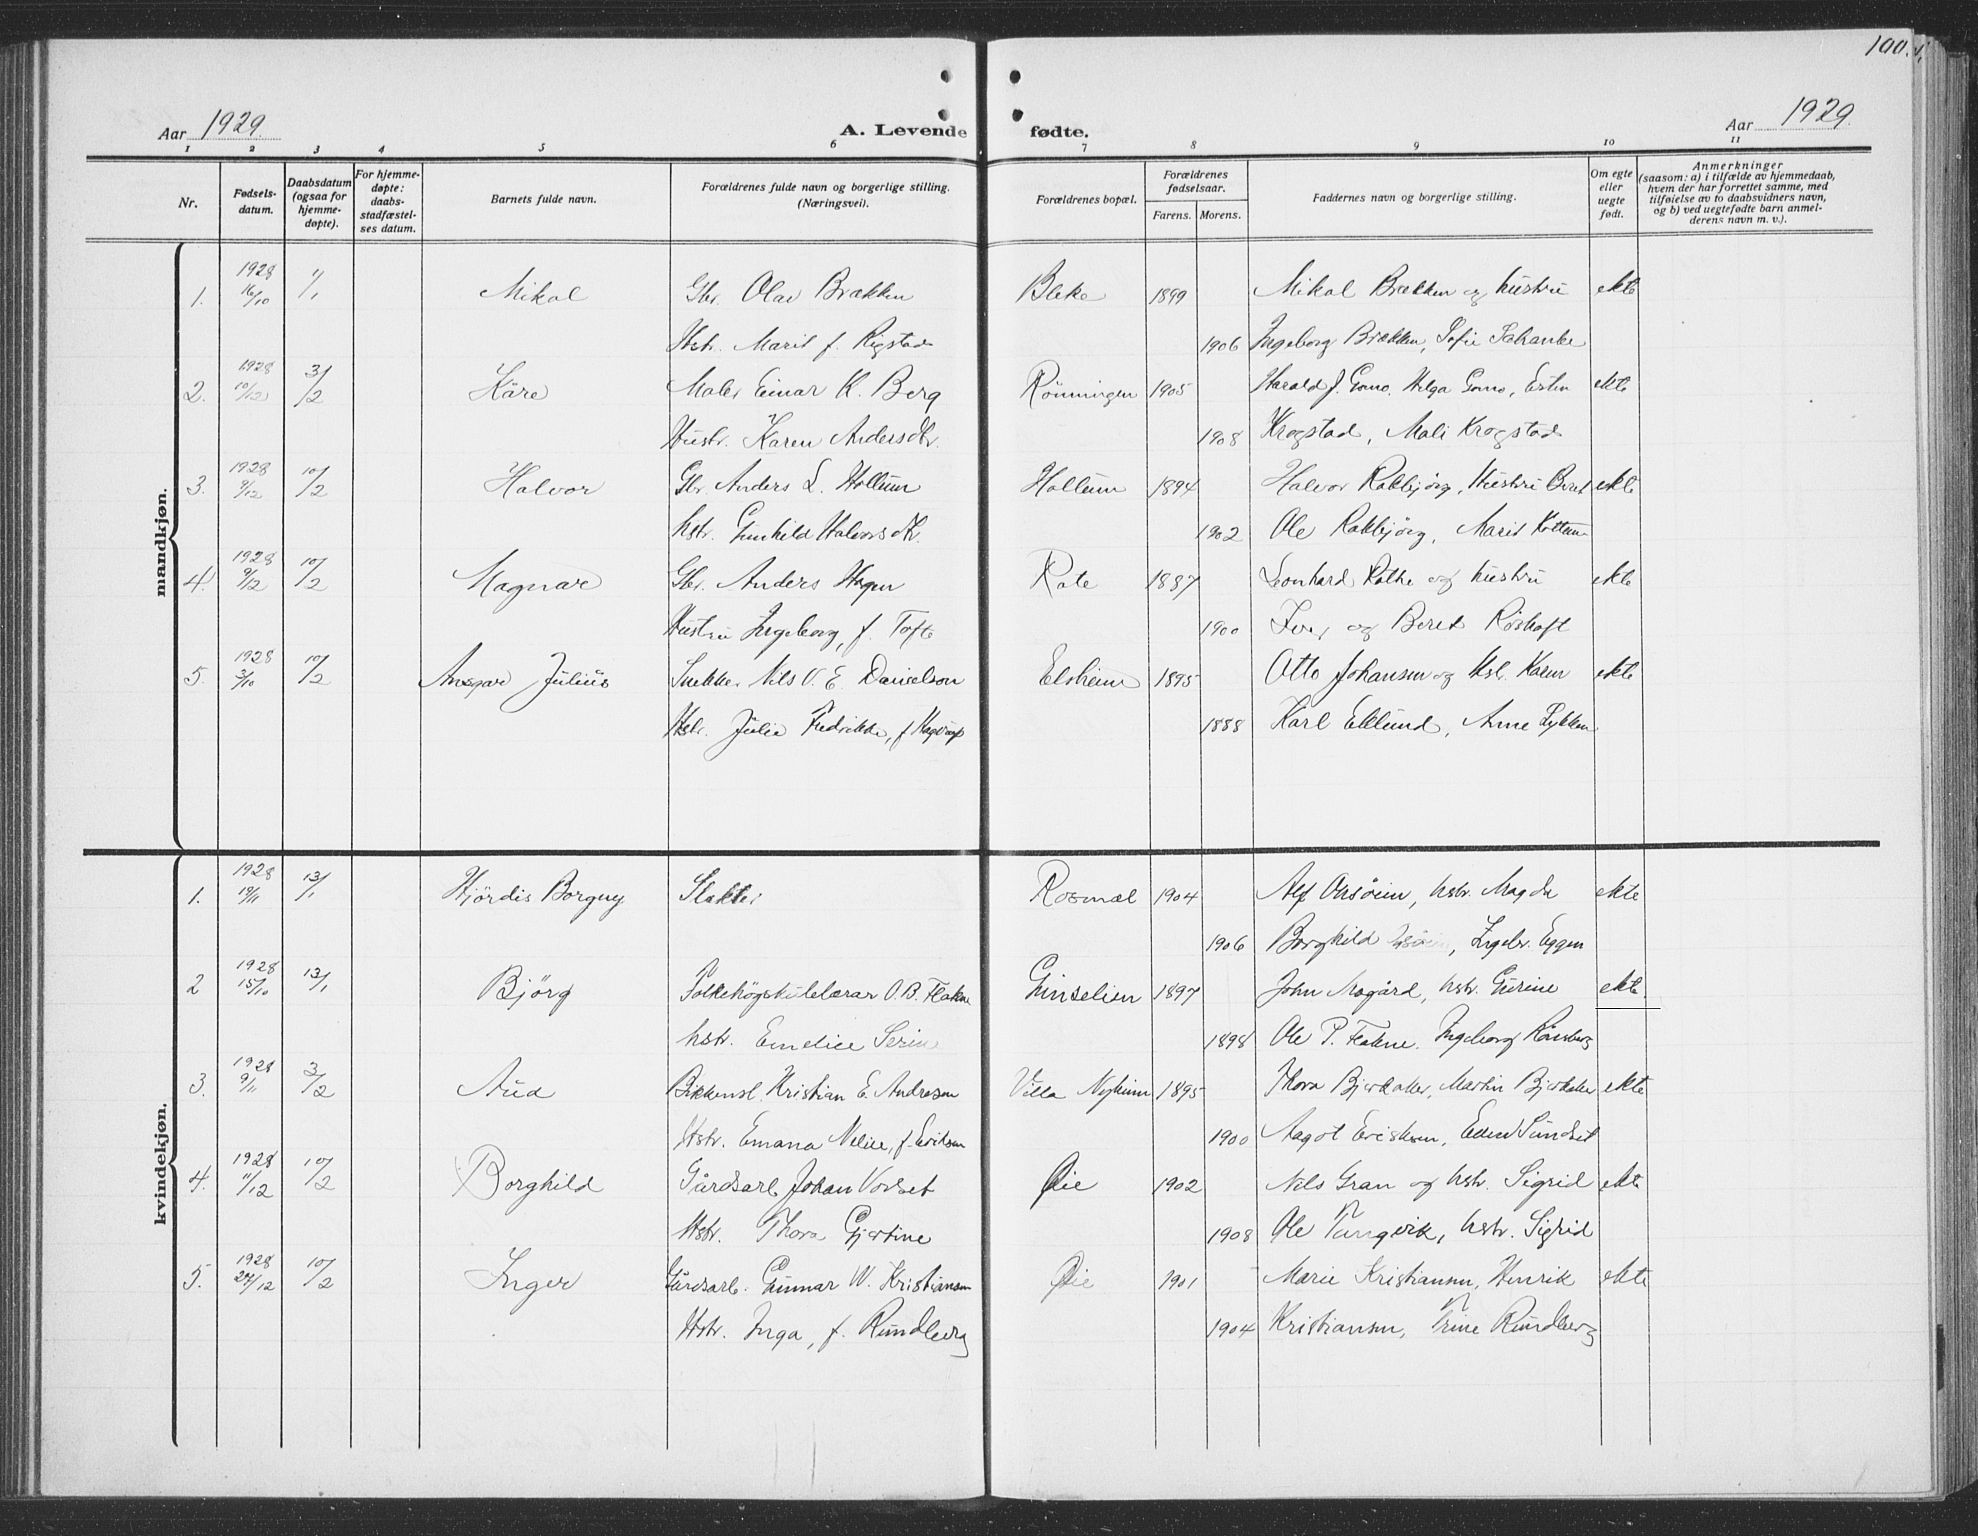 100.
Aar 1929
A. Levende fødte.
Aar 1929.
1 2 3 4 5 6 7 8 9 10 11
Nr.
Fødsels-
datum.
Daabsdatum
(ogsaa for
hjemme-
døpte).
For hjemme-
døpte:
daabs-
stadfæstel-
ses datum.
Barnets fulde navn.
Forældrenes fulde navn og borgerlige stilling.
(Næringsvei).
Forældrenes bopæl.
Forældrenes
fødselsaar.
Farens. Morens.
Faddernes navn og borgerlige stilling.
Om egte
eller
uegte
født.
Anmerkninger
(saasom: a) i tilfælde av hjemmedaab,
hvem der har forrettet samme, med
tilføielse av to daabsvidners navn,
og b) ved uegtefødte barn anmel-
derens navn m. v.).
mandkjøn.
1928
1. 16/10 1/1 Mikal Gbr. Olav Brækken Bleke 1899 Mikal Brækken og hustru ekte
Hstr. Marit f. Rigstad 1906 Ingeborg Brækken, Sofie
1928
2. 10/12 3/2 Kåre Maler Einar K. Berg Rönningen 1905 Harald J. Gomo, Helga Gomo, Esten ekte
Hustr. Karen Andersdtr. 1908 Krogstad, Mali Krogstad
1928
3. 9/12 10/2 Halvor Gbr. Anders L. Hollum Hollum 1894 Halvor Rakbjörg, Hustru Beret ekte
hstr. Gunhild Halvorsdtr. 1902 Ole Rakbjörg, Marit
1928
4. 9/12 10/2 Magnar Gbr. Anders Hagen Rate 1887 Leonhard Rathe og hustru ekte
Hustru Ingeborg, f. Tofte 1900 Iver og Beret Röshoft
1928
5. 3/10 10/2 Ansgar Julius Snekker Nils O. E. Danielson Elsheim 1895 Otto Johansen og Hst. Karen ekte
Hstr. Julie Fredrikke, f. 1888 Karl Eklund, Anne Lykken
kvindekjøn.
1928
1. 19/11 13/1 Hjördis Borguy Slakter Rosmæl 1904 Alf hstr. Magda ekte
1906 Borghild , Ingebr. Eggen
1928
2 15/10 13/1 Bjørg Folkehögskulelærar O. B. Flakne Ginselien 1897 John Mogård, hstr. Gurine ekte
hstr. Emelie Serine 1898 Ole P. Flakne, Ingeborg Rönsberg
1928
3. 9/11 3/2 Aud Kristian E. Andresen Villa Nyheim 1895 Thora Bjerkaker, Martin Bjerkaker ekte
Hstr. Emana Nelie, f. Eriksen 1900 Aagot Eriksen, Sundset
1928
4. 11/12 10/2 Borghild Gårdsarb. Johan Vorset Øie 1902 Nils Gran og hstr. Sigrid ekte
Hstr. Thora Gjertine 1908 Ole Tangvik, hstr. Sigrid
1928
5. 24/12 10/2 Inger Gårdsarb. Gunnar W. Kristiansen Øie 1901 Marie Kristiansen, Henrik ekte
Hstr. Inga, f. Rundberg 1904 Kristiansen, Trine Rundberg